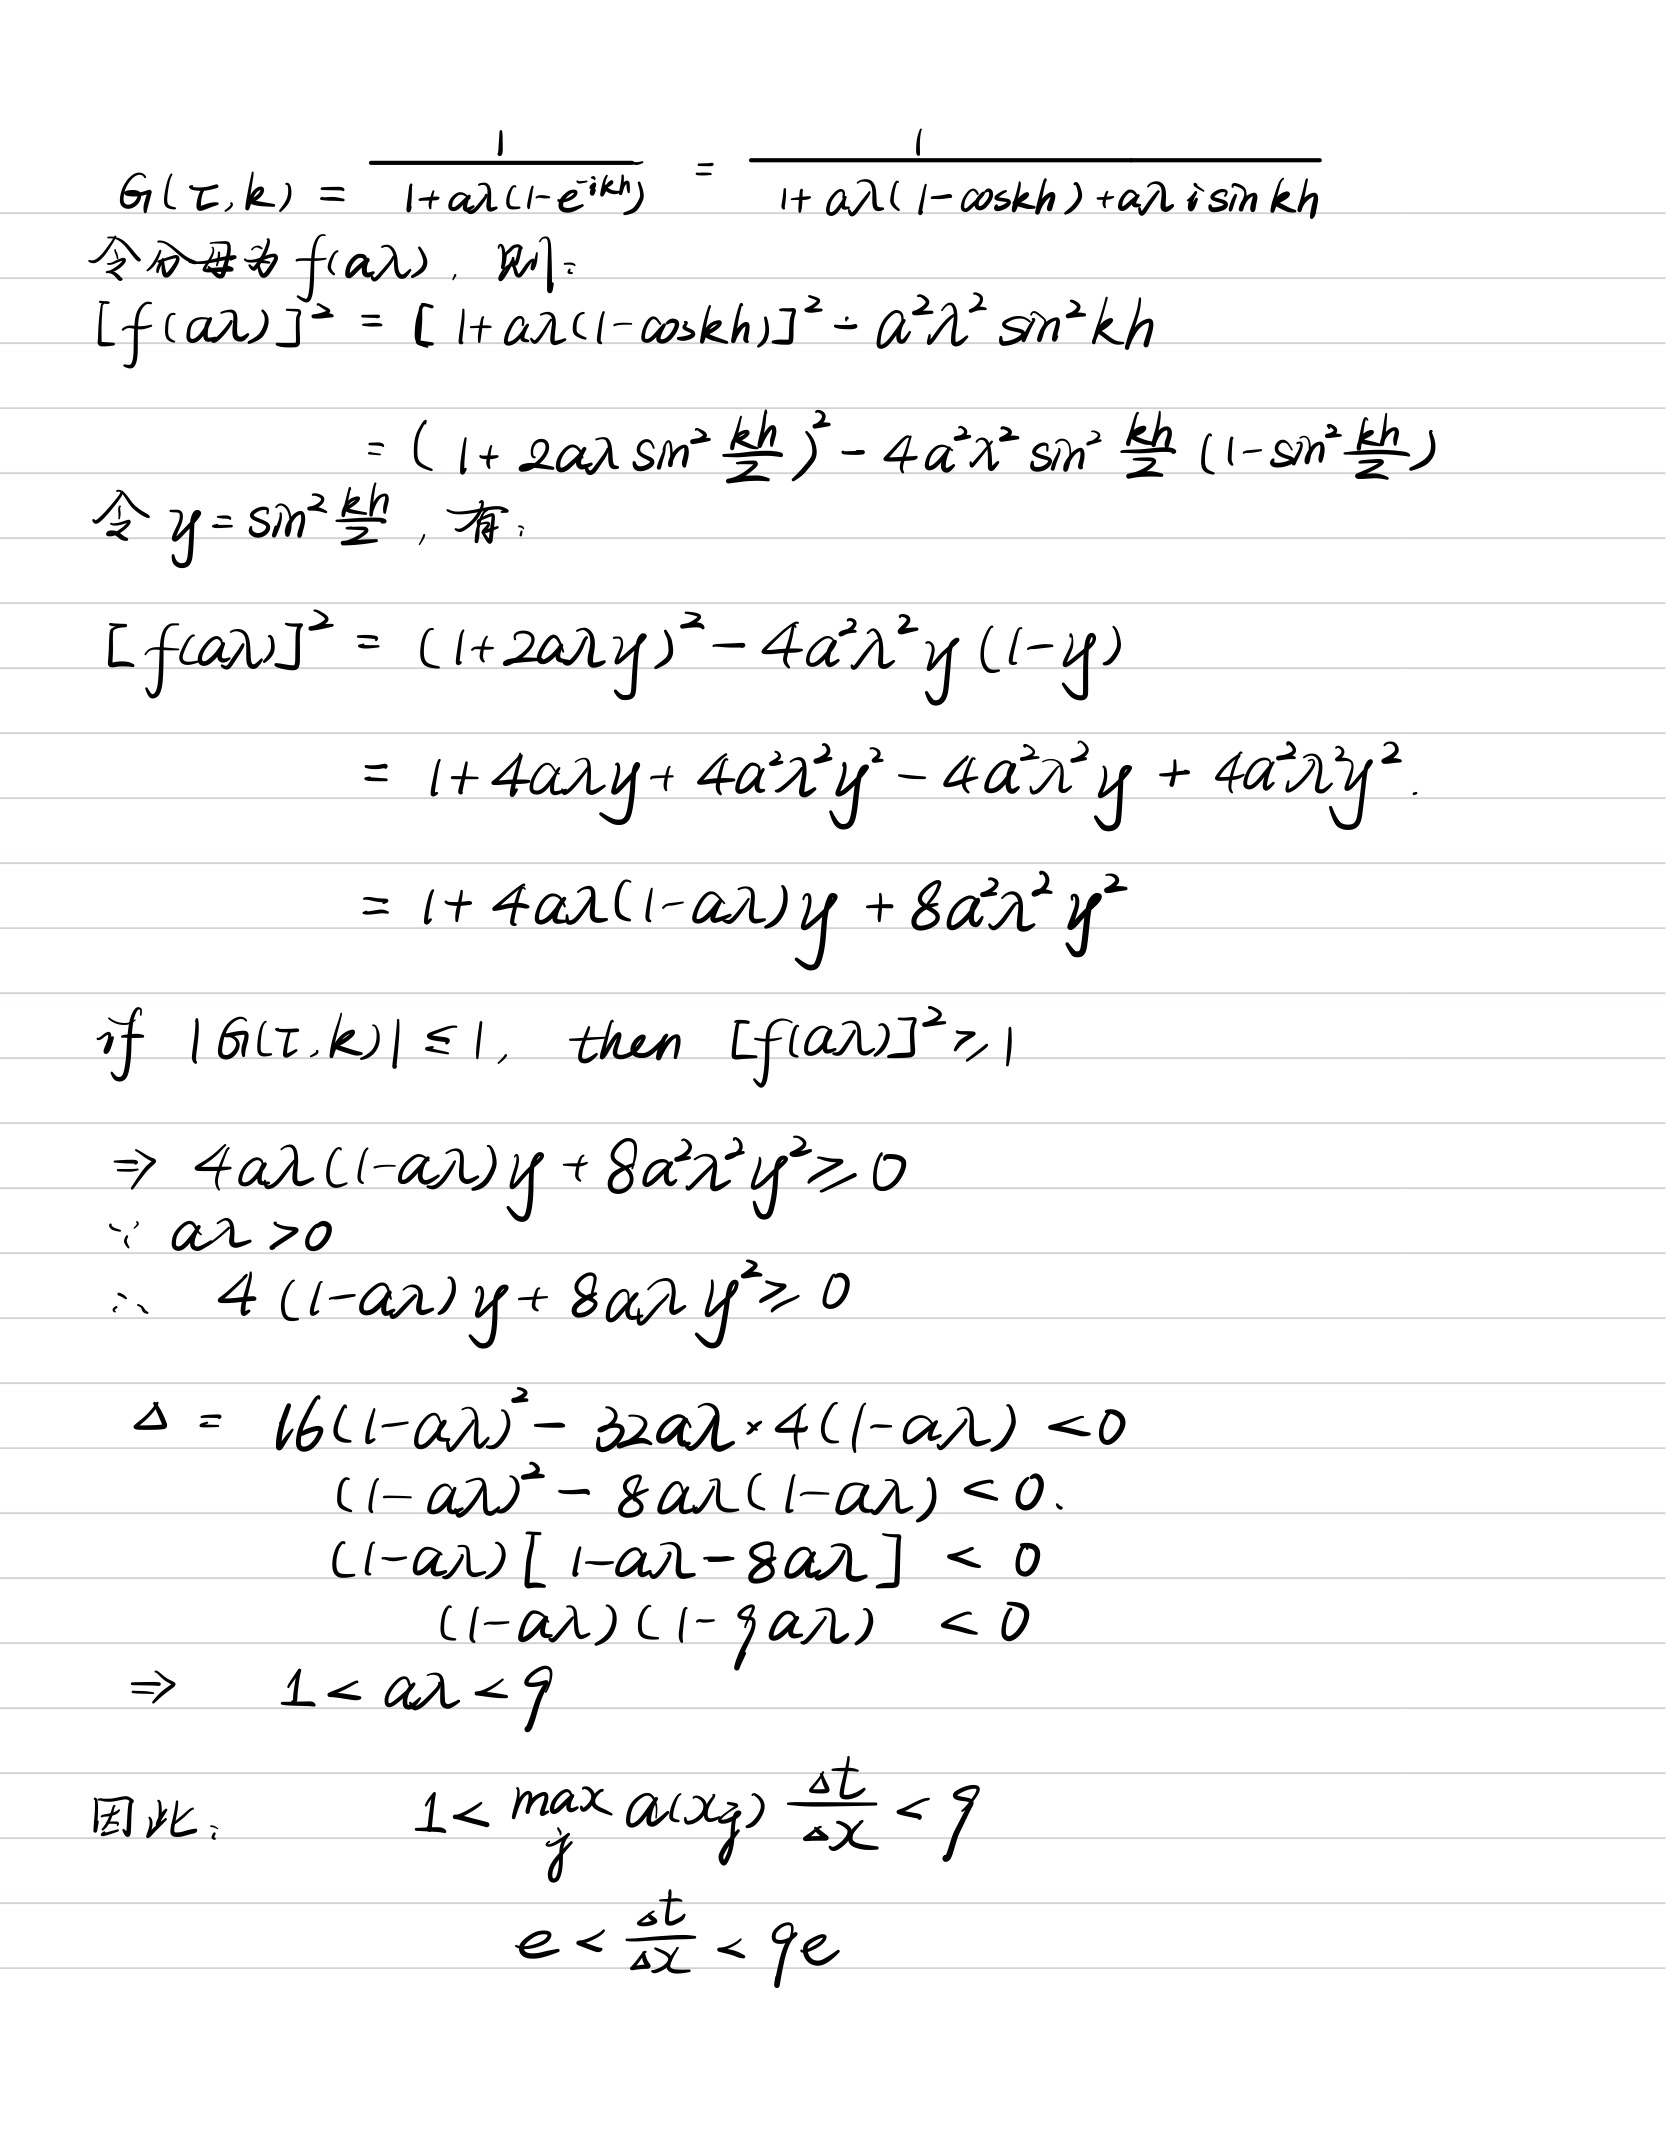 G(τ,k) = 1/(1+aλ(1-e^{-ikh})) = 1/(1+aλ(1-coskh)+aλ i sin kh)
令分母为 f(aλ), 则:
[f(aλ)]² = [1+aλ(1-coskh)]² - a²λ² sin² kh
= (1+2aλ sin² kh/2)² - 4a²λ² sin² kh/2 (1-sin² kh/2)
令 y = sin² kh/2, 有:
[f(aλ)]² = (1+2aλy)² - 4a²λ²y(1-y)
= 1+4aλy+4a²λ²y² - 4a²λ²y + 4a²λ²y².
= 1+4aλ(1-aλ)y + 8a²λ²y²
if |G(τ,k)| ≤ 1, then [f(aλ)]² ≥ 1
⇒ 4aλ(1-aλ)y + 8a²λ²y² ≥ 0
∵ aλ > 0
∴ 4(1-aλ)y + 8aλy² ≥ 0
Δ = 16(1-aλ)² - 32aλ × 4(1-aλ) < 0
(1-aλ)² - 8aλ(1-aλ) < 0.
(1-aλ)[1-aλ-8aλ] < 0
(1-aλ)(1-9aλ) < 0
⇒ 1 < aλ < 9
因此: 1 < max_j a(x_j) Δt/Δx < 9
e < Δt/Δx < 9e